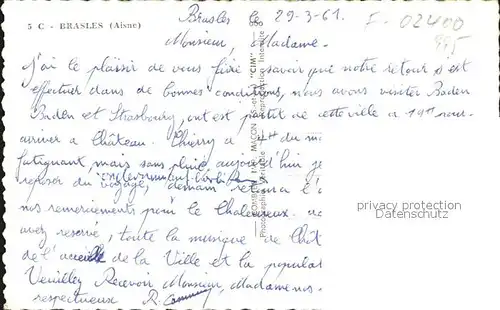 5 C - BRASLES (Aisne)
Brasles le 29-3-61.
F-02400
995
Monsieur, Madame.
J'ai le plaisir de vous faire savoir que notre retour s'est
effectuer dans de bonnes conditions, nous avons visiter Baden
Baden et Strasbourg, ont est partit de cette ville a 19H pour
arriver a Château-Thierry a 4H du m
fatiguant, mais sans pluie, aujourd'hui je
reposer du voyage, demain
nos remerciements pour le Chaleureux
avez reservé, toute la musique de Chât
de l'accueil de la Ville et la populat
Veuillez Recevoir Monsieur, Madame nos
respectueux R.
COMBIER IMP. MACON "CIM"
Photographie Véritable - Reproduction Interdite
privacy protection